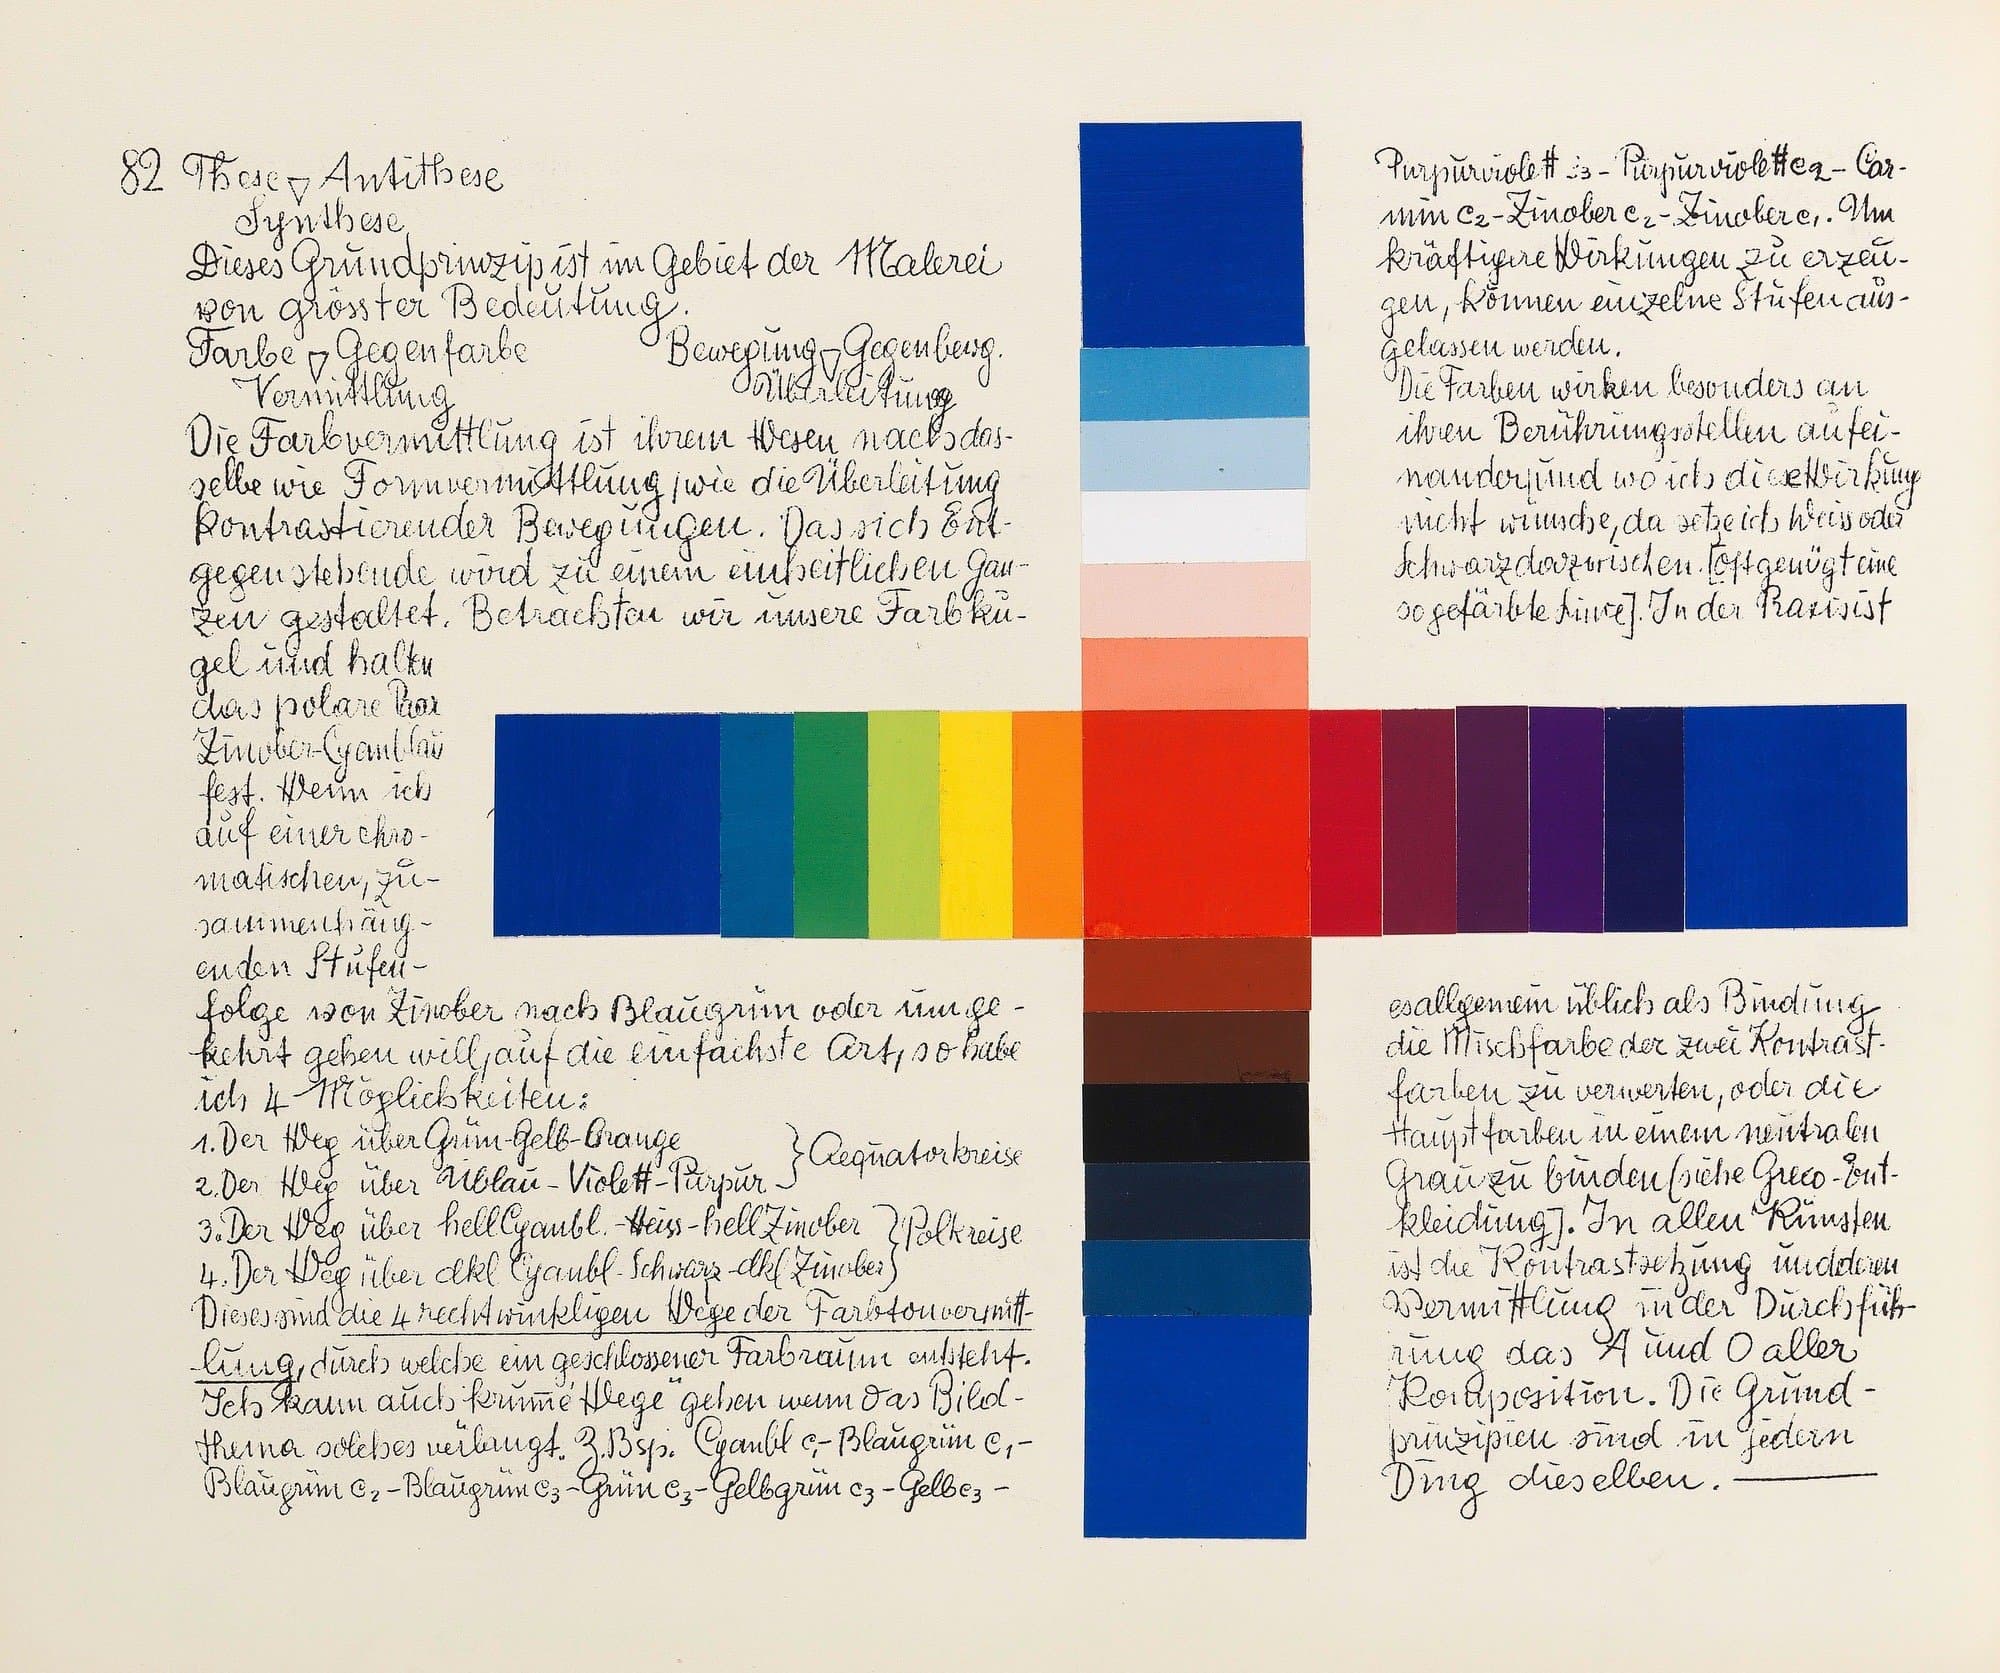 82 These ▽ Antithese
Synthese
Dieses Grundprinzip ist im Gebiet der Malerei
von grösster Bedeutung.
Farbe ▽ Gegenfarbe Bewegung ▽ Gegenbewg.
Vermittlung Überleitung
Die Farbvermittlung ist ihrem Wesen nach das-
selbe wie Formvermittlung, wie die Überleitung
kontrastierender Bewegungen. Das sich Ent-
gegenstehende wird zu einem einheitlichen Gan-
zen gestaltet. Betrachten wir unsere Farbku-
gel und halten
das polare Paar
Zinober-Cyanblau
fest. Wenn ich
auf einer chro-
matischen, zu-
sammenhäng-
enden Stufen-
folge von Zinober nach Blaugrün oder umge-
kehrt gehen will, auf die einfachste Art, so habe
ich 4 Möglichkeiten:
1. Der Weg über Grün-Gelb-Orange
2. Der Weg über Ublau-Violett-Purpur } Aequatorkreise
3. Der Weg über hell Cyanbl.-Weiss-hell Zinober
4. Der Weg über dkl Cyanbl-Schwarz-dkl Zinober } Polkreise
Dieses sind die 4 rechtwinkligen Wege der Farbtonvermitt-
lung, durch welche ein geschlossener Farbraum entsteht.
Ich kann auch "krumme Wege" gehen wenn das Bild-
thema solches verlangt. Z. Bsp. Cyanbl c₁-Blaugrün c₁-
Blaugrün c₂-Blaugrün c₃-Grün c₃-Gelbgrün c₃-Gelb c₃-
Purpurviolett c₃-Purpurviolett c₂-Car-
min c₂-Zinober c₂-Zinober c₁. Um
kräftigere Wirkungen zu erzeu-
gen, können einzelne Stufen aus-
gelassen werden.
Die Farben wirken besonders an
ihren Berührungsstellen aufei-
nander, und wo ich diese Wirkung
nicht wünsche, da setze ich Weiss oder
Schwarz dazwischen. [Oft genügt eine
so gefärbte Linie]. In der Praxis ist
es allgemein üblich als Bindung
die Mischfarbe der zwei Kontrast-
farben zu verwerten, oder die
Hauptfarben in einem neutralen
Grau zu binden (siehe Greco-Ent-
kleidung). In allen Künsten
ist die Kontrastsetzung und deren
Vermittlung in der Durchfüh-
rung das A und O aller
Komposition. Die Grund-
prinzipien sind in jedem
Ding dieselben.